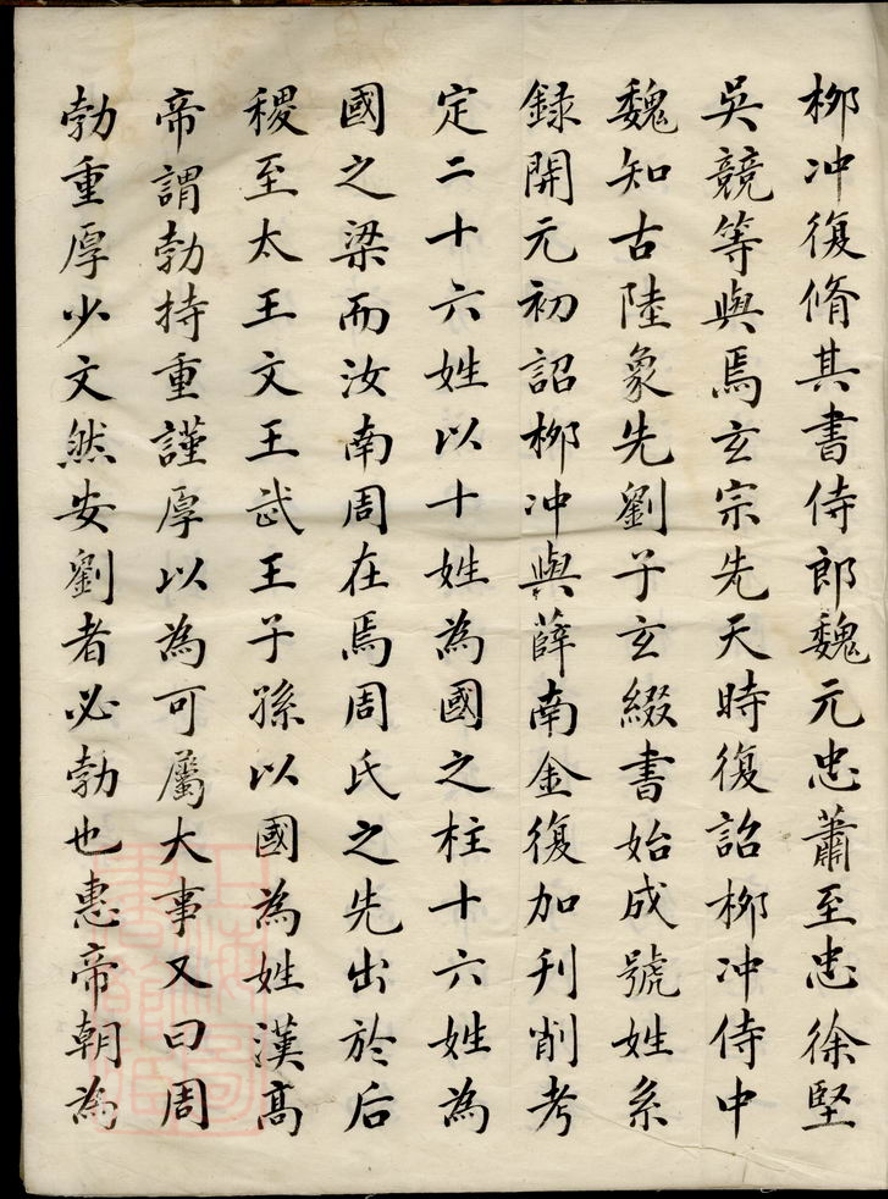 柳冲復脩其書侍郎魏元忠蕭至忠徐堅
吳競等與焉玄宗先天時復詔柳冲侍中
魏知古陸象先劉子玄綴書始成號姓系
録開元初詔柳冲與薛南金復加刋削考
定二十六姓以十姓為國之柱十六姓為
國之梁而汝南周在焉周氏之先出於后
稷至太王文王武王子孫以國為姓漢高
帝謂勃持重謹厚以為可屬大事又曰周
勃重厚少文然安劉者必勃也惠帝朝為
上海圖書館藏